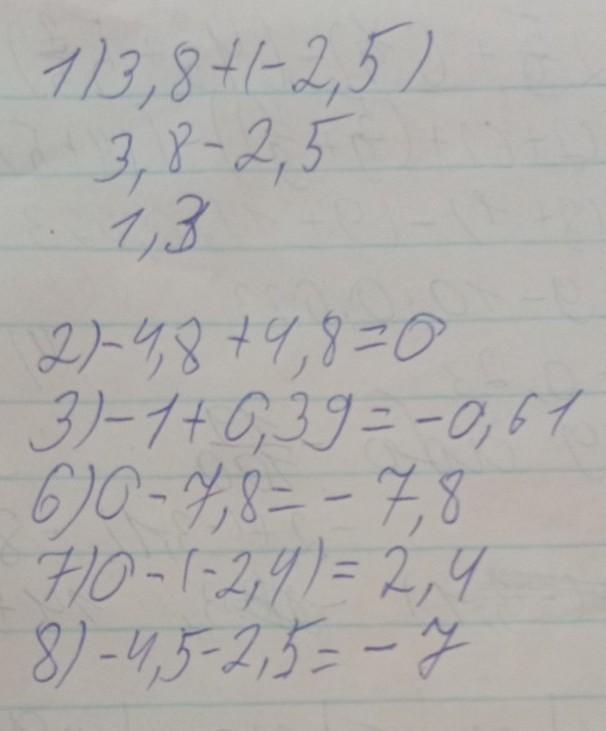 1) 3,8+(-2,5)
3,8-2,5
1,3
2) -4,8+4,8=0
3) -1+0,39=-0,61
6) 0-7,8=-7,8
7) 0-(-2,4)=2,4
8) -4,5-2,5=-7